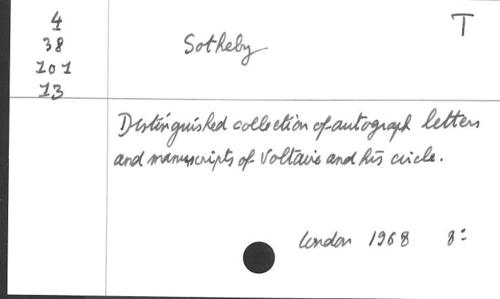 4
38
101
13
Sotheby
T
Distinguished collection of autograph letters
and manuscripts of Voltaire and his circle.
London 1968 8: